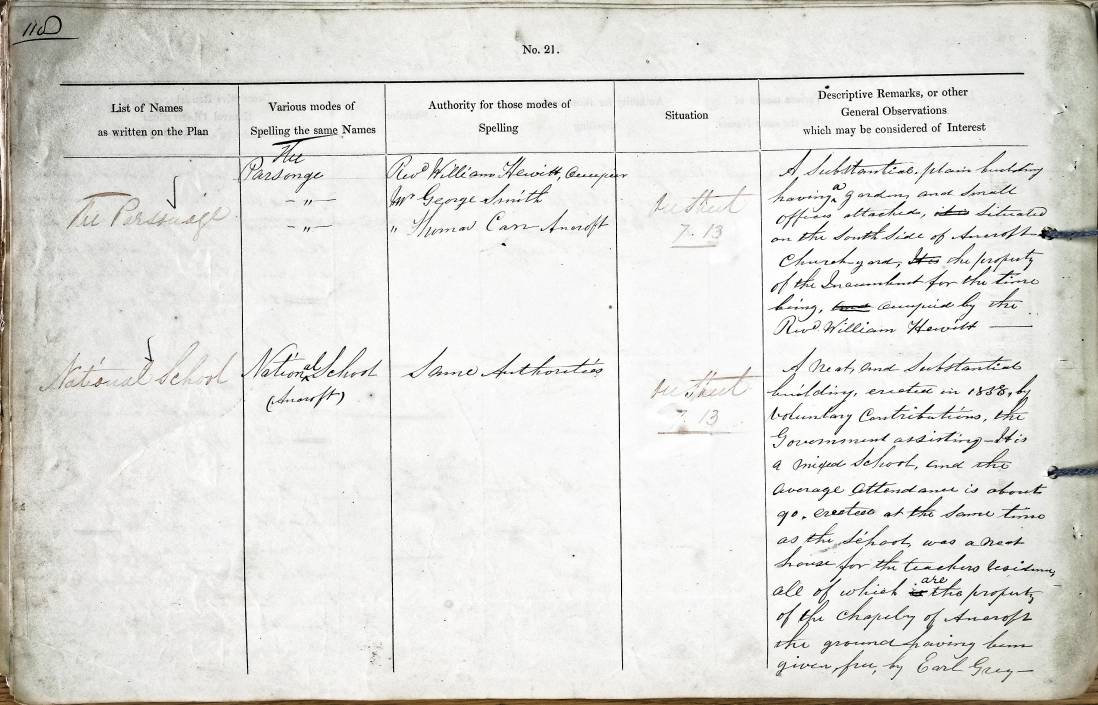 118
No. 21.
List of Names
as written on the Plan
Various modes of
Spelling the same Names
Authority for those modes of
Spelling
Situation
Descriptive Remarks, or other
General Observations
which may be considered of Interest
The Parsonage
The
Parsonge
- " -
- " -
Revd. William Hewitt, Occupier
Mr George Smith
" Thomas Carr Ancroft
On Sheet
7. 13
A Substantial plain building
having a garden, and small
offices attached, it is Situated
on the South Side of Ancroft
Church yard, It is the property
of the Incumbent for the time
being, and occupied by the
Revd. William Hewitt —
National School
National School
(Ancroft)
Same Authorities
On Sheet
7. 13
A Neat, and Substantial
building, erected in 1838, by
Voluntary Contributions, the
Government assisting - It is
a mixed School, and the
average attendance is about
90. erected at the same time
as the School, was a neat
house for the teachers residence,
all of which is are the property
of the Chapelry of Ancroft
the ground having been
given, free, by Earl Grey -